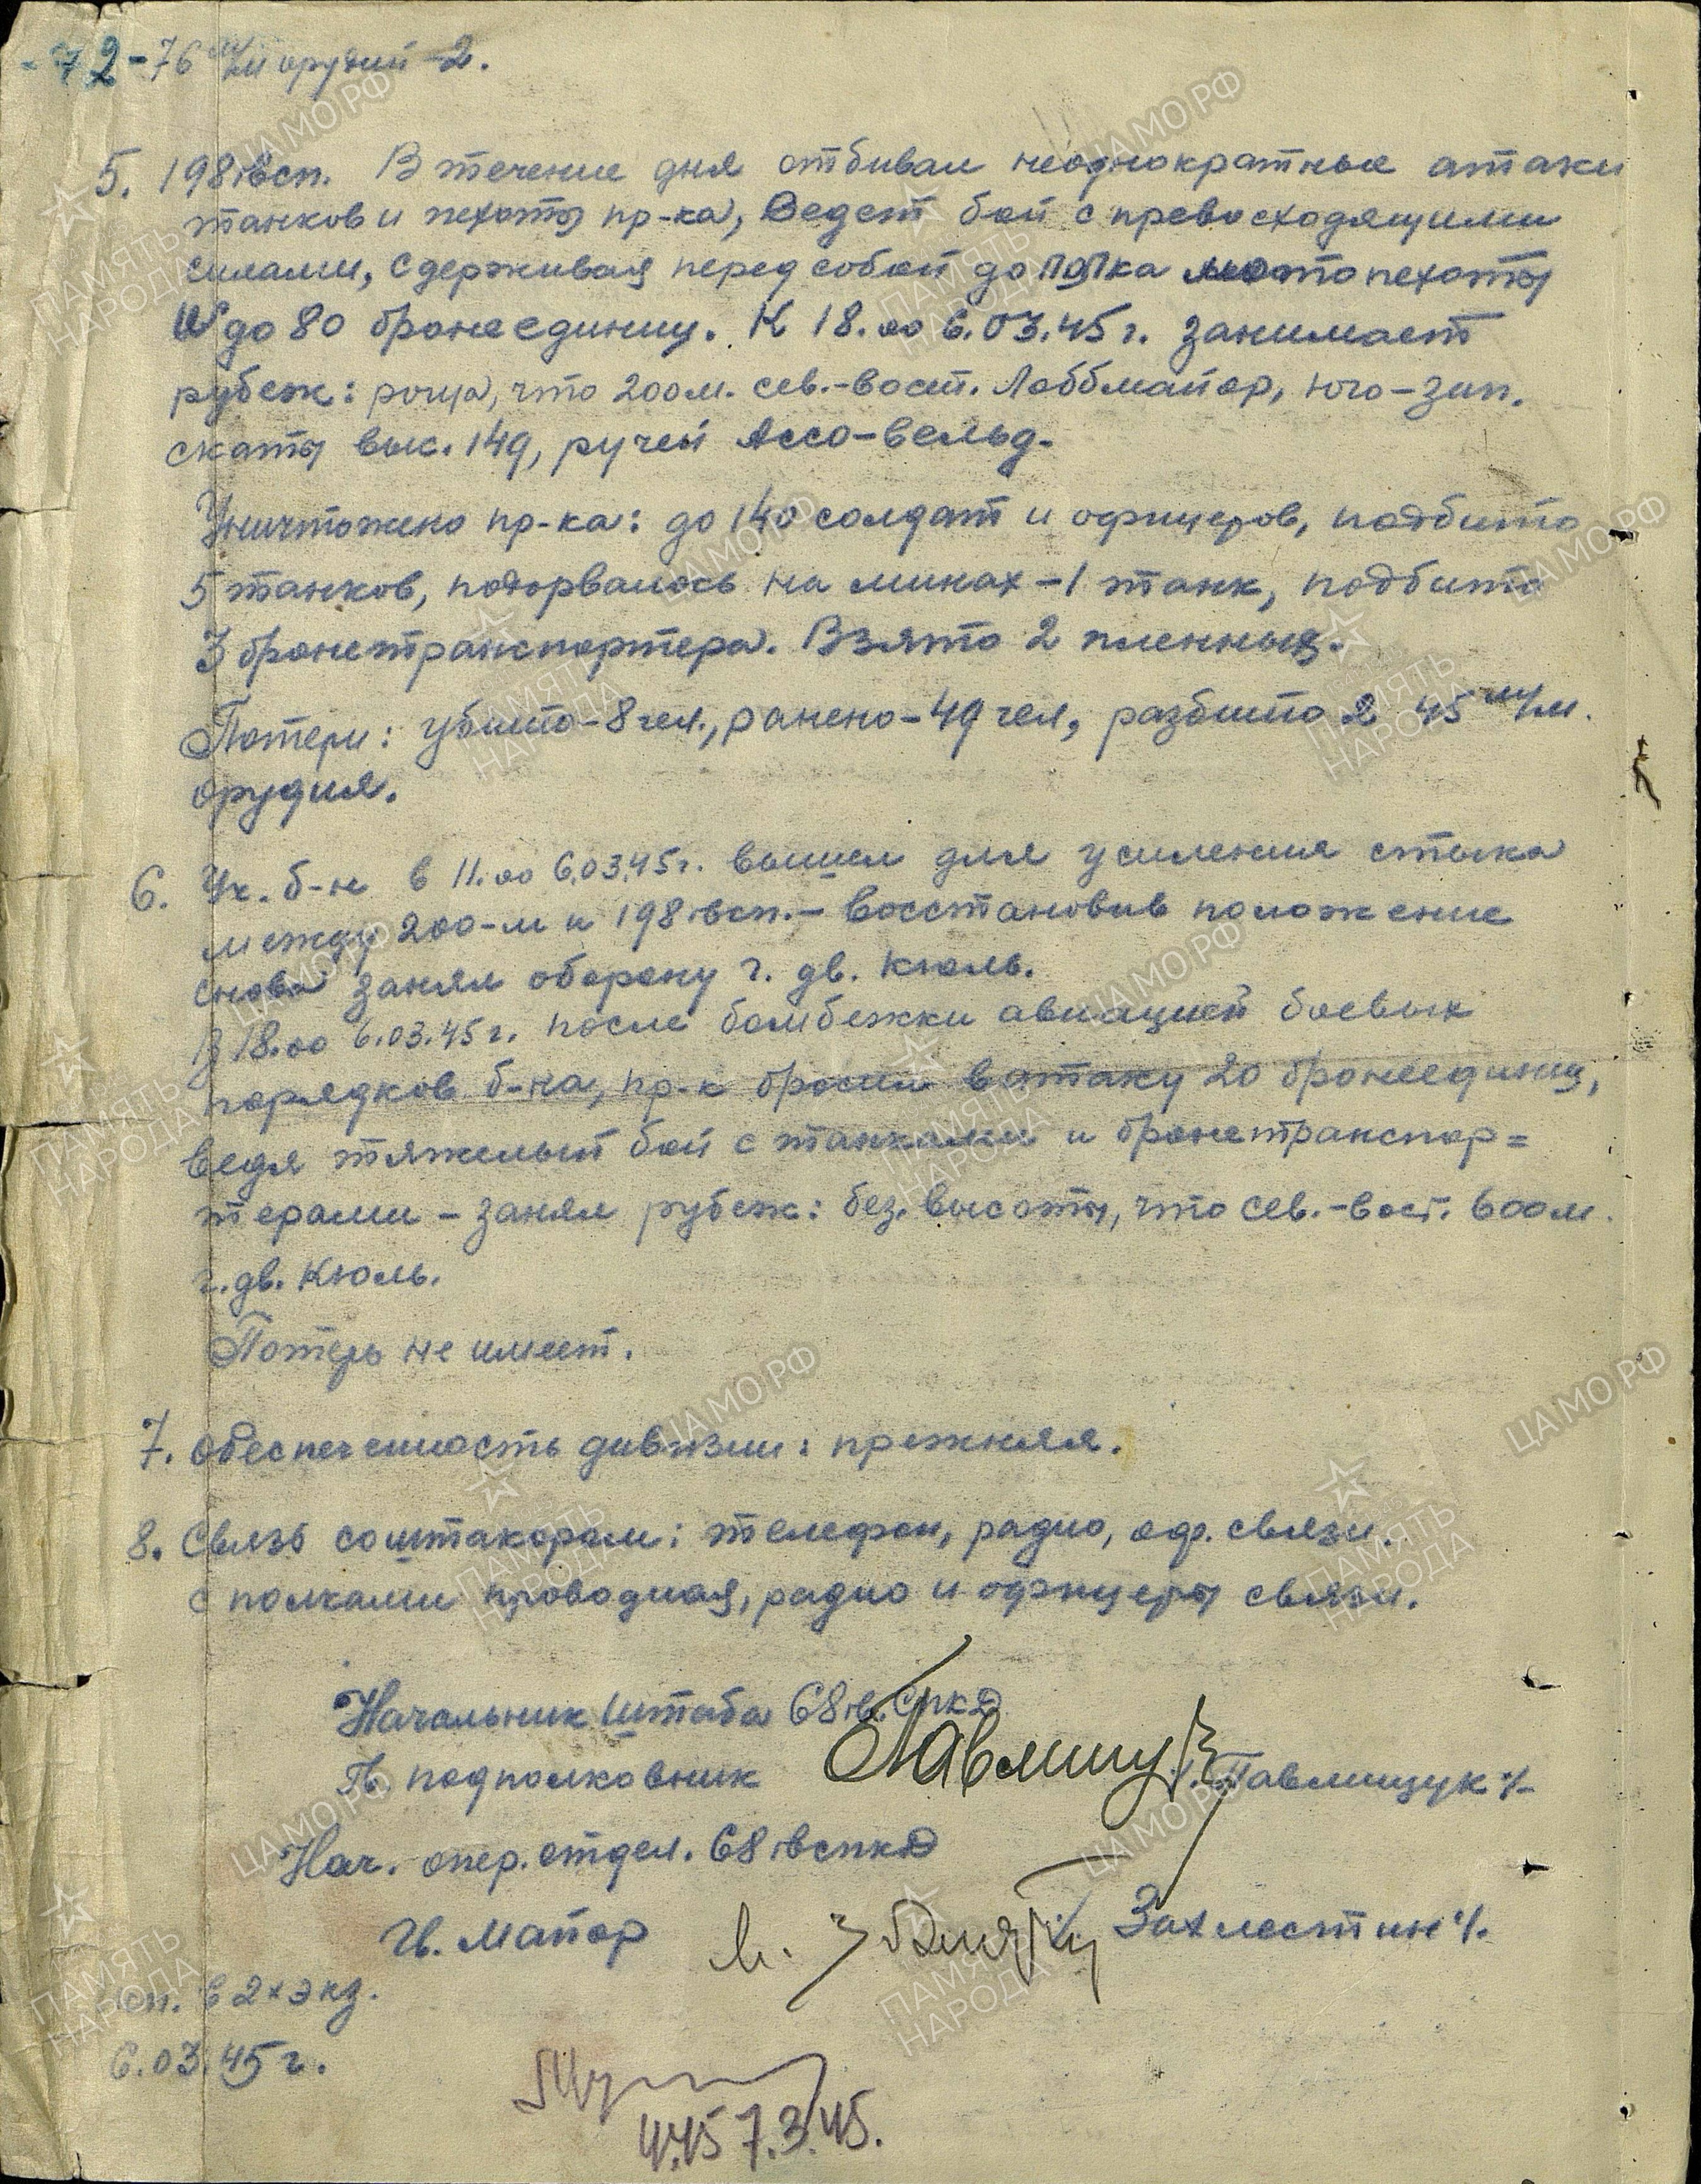 -72- 76 м/м орудий -2.
5. 198 гвсп. В течение дня отбивал неоднократные атаки
танков и пехоты пр-ка, Ведет бой с превосходящими
силами, сдерживая перед собой до полка мотопехоты
и до 80 бронеединиц. К 18.00 6.03.45г. занимает
рубеж: роща, что 200м. сев.-вост. Лоббмайор, юго-зап.
скаты выс. 149, ручей Ассо-вельд.
Уничтожено пр-ка: до 140 солдат и офицеров, подбито
5 танков, подорвалось на минах -1 танк, подбито
3 бронетранспортера. Взято 2 пленных.
Потери: убито-8 чел., ранено-49 чел, разбито 2 45 м/м.
орудия.
6. Уч. б-н в 11.00 6.03.45г. вышел для усиления стыка
между 200-м и 198 гвсп.- восстановив положение
снова занял оборону г. дв. Кюль.
В 18.00 6.03.45г. после бомбежки авиацией боевых
порядков б-на, пр-к бросил в атаку 20 бронеединиц,
ведя тяжелый бой с танками и бронетранспор=
терами - занял рубеж: без. высоты, что сев.-вост. 600м.
г. дв. Кюль.
Потерь не имеет.
7. Обеспеченность дивизии: прежняя.
8. Связь со штакором: телефон, радио, оф. связи.
с полками проводная, радио и офицеры связи.
Начальник штаба 68 гв. Спкд
Гв. подполковник /. Павлищук ./.
Нач. опер. отдел. 68 гвспкд
Гв. Майор / Захлестин ./.
оп. в 2х экз.
6.03.45г.
4.45 7.3.45.
ЦАМО.РФ
ПАМЯТЬ
НАРОДА